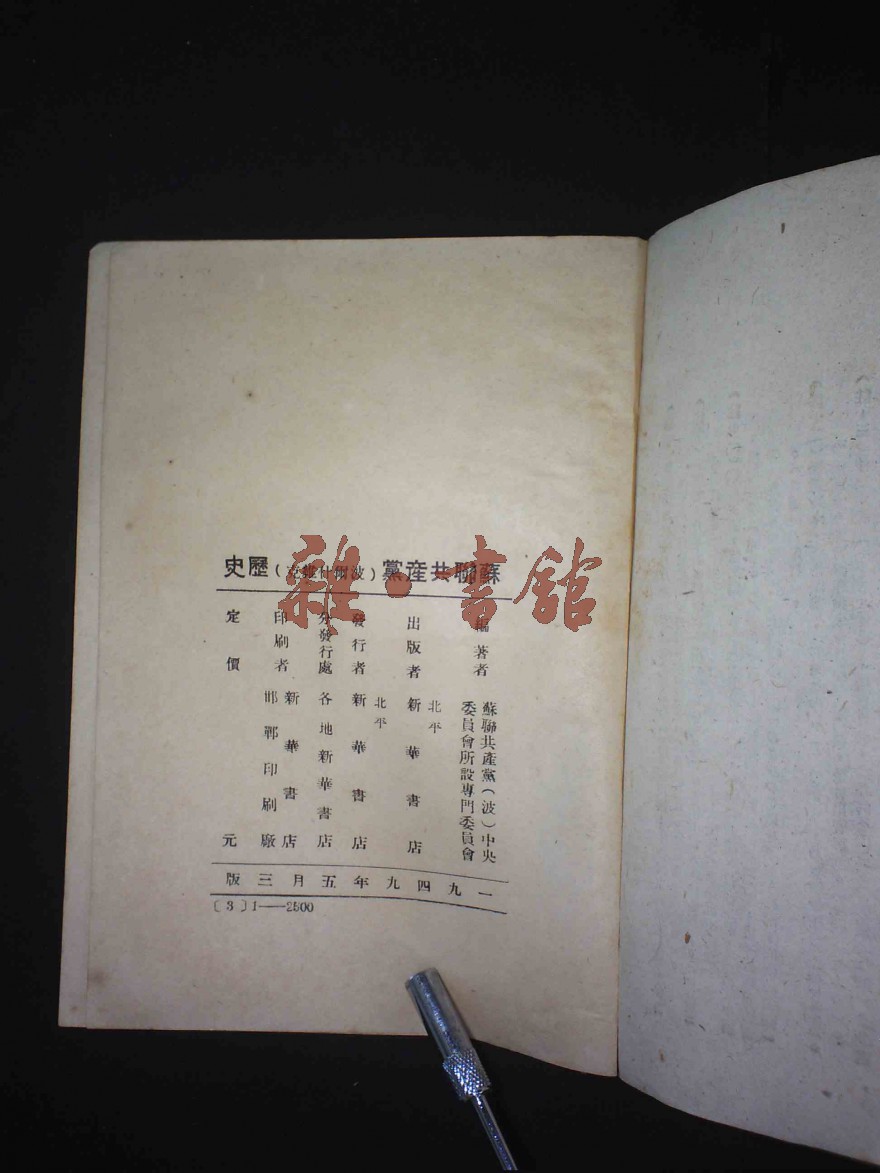 蘇聯共產黨（波爾什維克）歷史
編著者 蘇聯共產黨（波）中央
委員會所設專門委員會
出版者 北平 新華書店
發行者 北平 新華書店
分發行處 各地新華書店
印刷者 新華書店
邯鄲印刷廠
定價 元
一九四九年五月三版
〔3〕1——2500
雜·書館